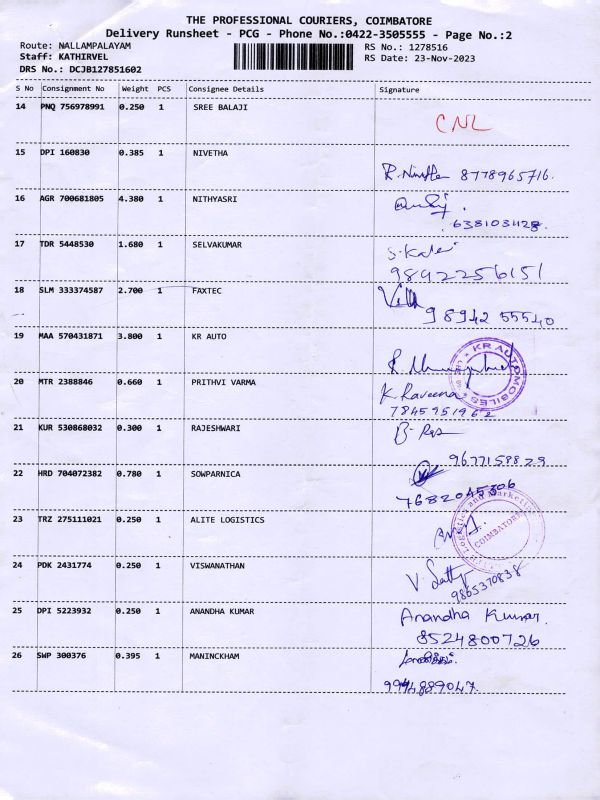 THE PROFESSIONAL COURIERS, COIMBATORE
Delivery Runsheet - PCG - Phone No.:0422-3505555 - Page No.:2
Route: NALLAMPALAYAM RS No.: 1278516
Staff: KATHIRVEL RS Date: 23-Nov-2023
DRS No.: DCJB127851602
S No Consignment No Weight PCS Consignee Details Signature
14 PNQ 756978991 0.250 1 SREE BALAJI
CNL
15 DPI 160830 0.385 1 NIVETHA
8778965716.
16 AGR 700681805 4.380 1 NITHYASRI
638103428.
17 TDR 5448530 1.680 1 SELVAKUMAR
9842256151
18 SLM 333374587 2.700 1 FAXTEC
98942 55540
19 MAA 570431871 3.800 1 KR AUTO
KR AUTOMOBILES
20 MTR 2388846 0.660 1 PRITHVI VARMA
K. Raveena
7845951962
21 KUR 530868032 0.300 1 RAJESHWARI
9677158829
22 HRD 704072382 0.780 1 SOWPARNICA
7682045306
23 TRZ 275111021 0.250 1 ALITE LOGISTICS
Logistics and Marketing
COIMBATORE
24 PDK 2431774 0.250 1 VISWANATHAN
9865370838
25 DPI 5223932 0.250 1 ANANDHA KUMAR
Anandha Kumar.
8524800726
26 SWP 300376 0.395 1 MANINCKHAM
9994889047.